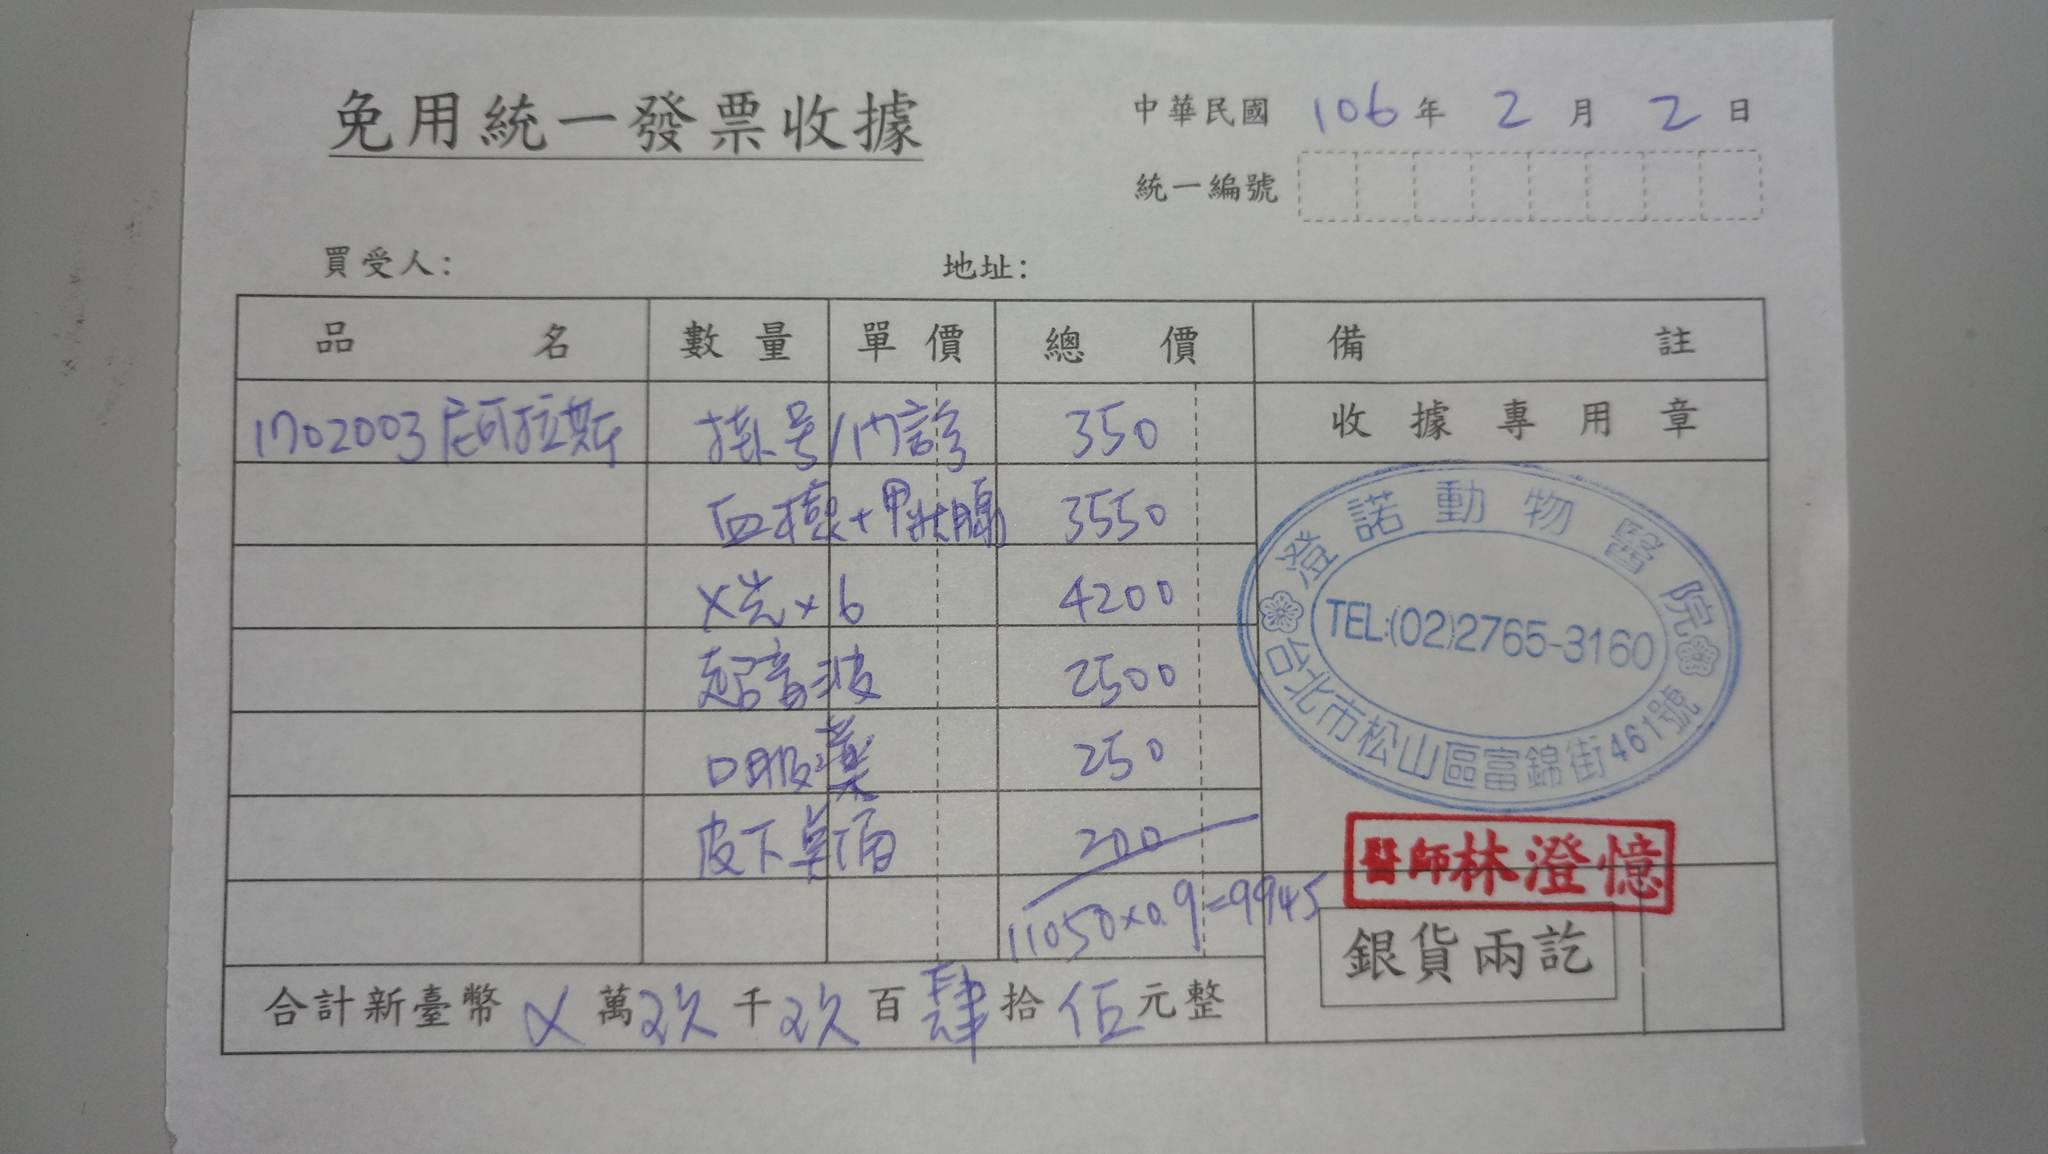 免用統一發票收據
中華民國 106 年 2 月 2 日
統一編號
買受人: 地址:
品名 數量 單價 總價 備註
1702003 尼可拉斯 掛号/門診 350 收據專用章
血檢+甲狀腺 3550
X光×6 4200
超音波 2500
口服藥 250
皮下 200
11050×0.9=9945
合計新臺幣 X 萬 玖 千 玖 百 肆 拾 伍 元整
澄諾動物醫院
TEL:(02)2765-3160
台北市松山區富錦街461號
醫師林澄憶
銀貨兩訖